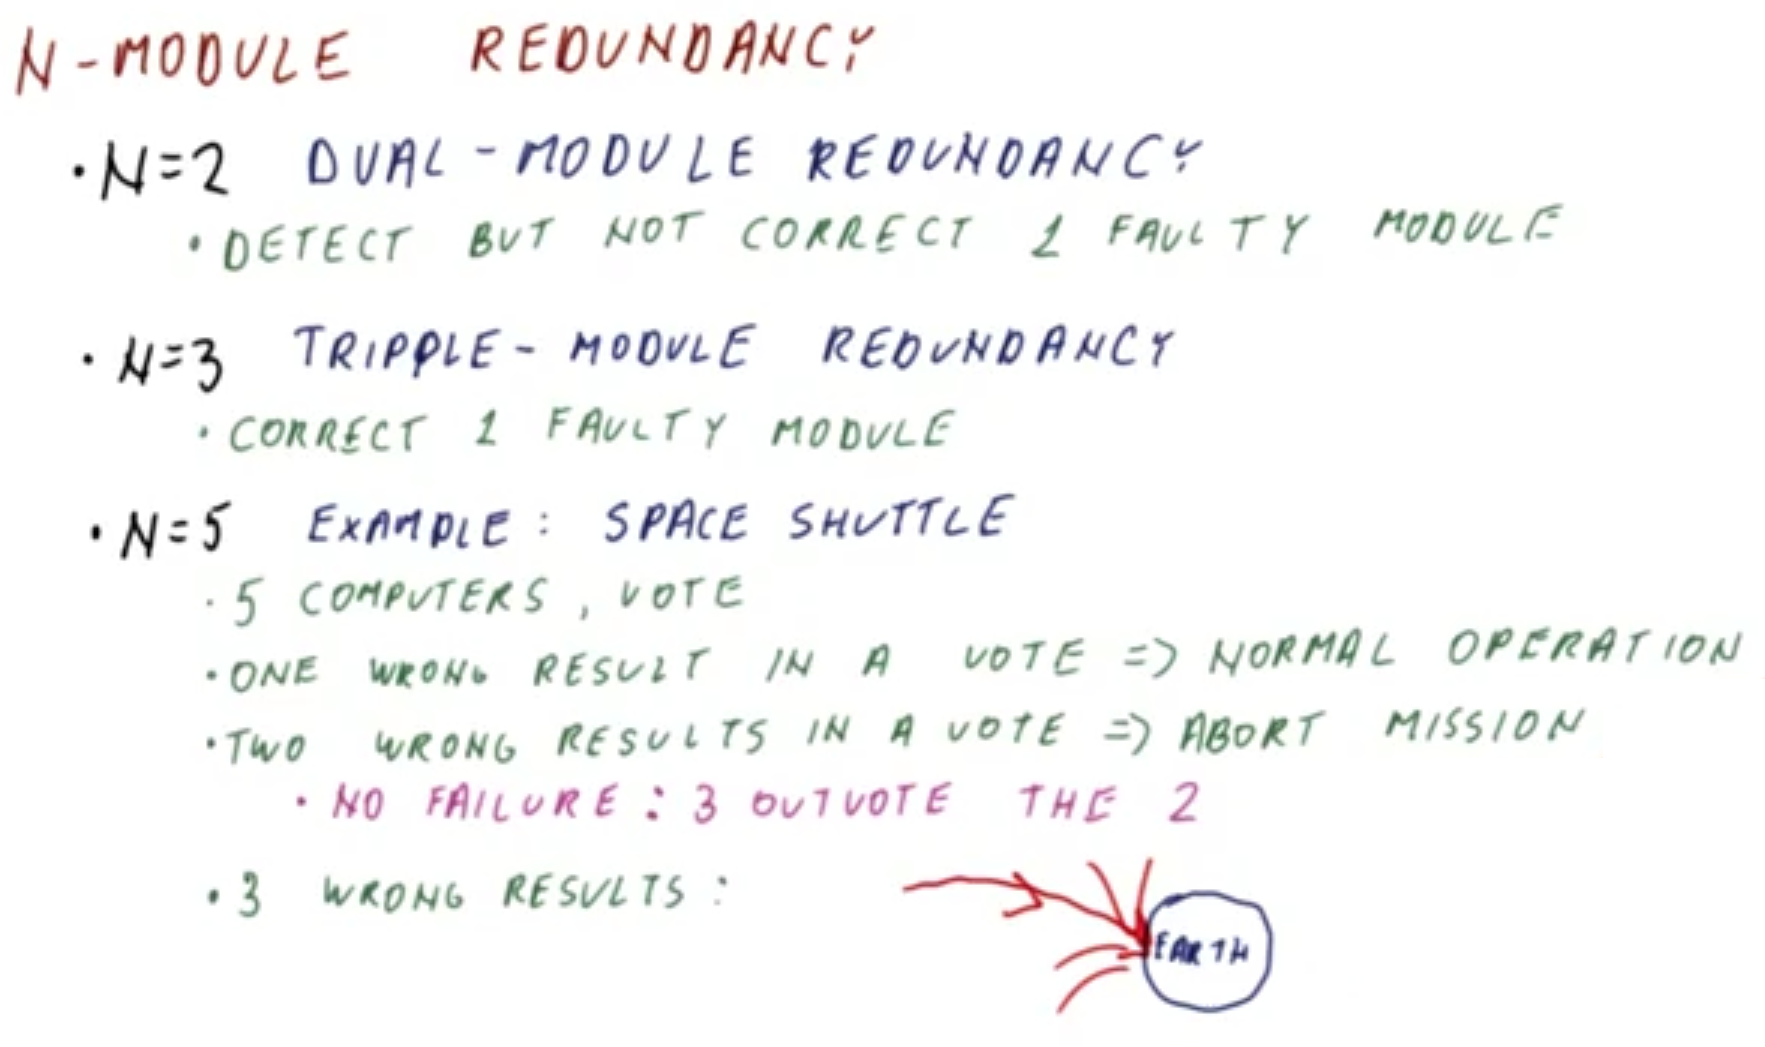 N-MODULE REDUNDANCY
• N=2 DUAL-MODULE REDUNDANCY
• DETECT BUT NOT CORRECT 1 FAULTY MODULE
• N=3 TRIPPLE-MODULE REDUNDANCY
• CORRECT 1 FAULTY MODULE
• N=5 EXAMPLE: SPACE SHUTTLE
• 5 COMPUTERS, VOTE
• ONE WRONG RESULT IN A VOTE => NORMAL OPERATION
• TWO WRONG RESULTS IN A VOTE => ABORT MISSION
• NO FAILURE: 3 OUTVOTE THE 2
• 3 WRONG RESULTS:
EARTH